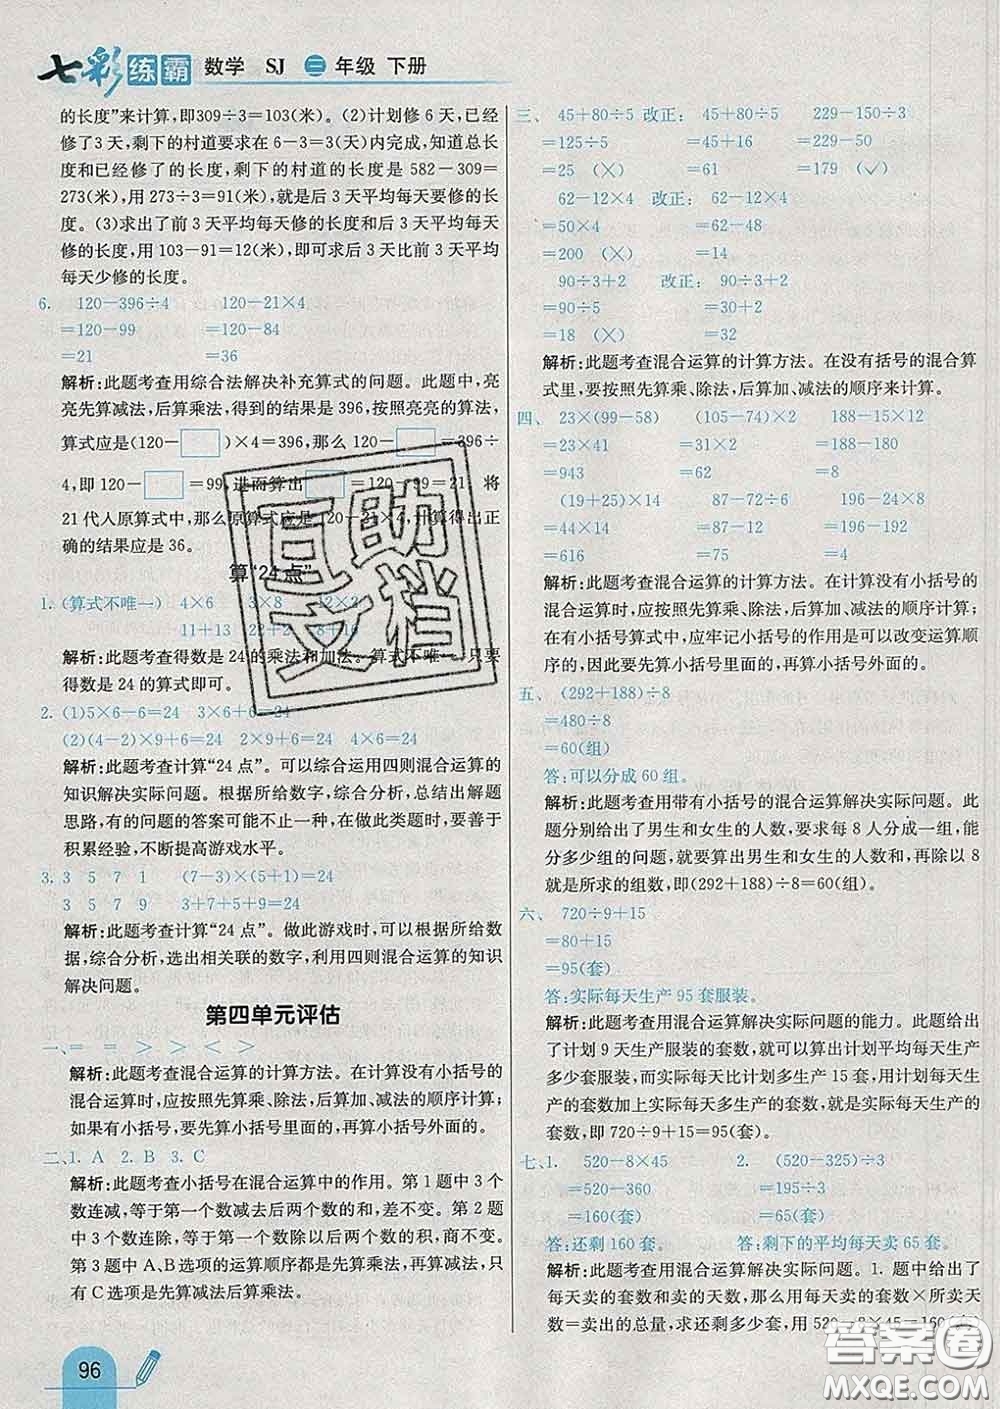 七彩练霸 数学 SJ 三年级 下册
的长度”来计算,即309÷3=103(米)。(2)计划修 6 天,已经
修了3 天,剩下的村道要求在 6-3=3(天)内完成,知道总长
度和已经修了的长度,剩下的村道的长度是 582-309=
273(米),用 273÷3=91(米),就是后 3 天平均每天要修的长
度。(3)求出了前 3 天平均每天修的长度和后 3 天平均每天
修的长度,用 103-91=12(米),即可求后 3 天比前 3 天平均
每天少修的长度。
6. 120-396÷4 120-21×4
=120-99 =120-84
=21 =36
解析:此题考查用综合法解决补充算式的问题。此题中,亮
亮先算减法,后算乘法,得到的结果是 396,按照亮亮的算法,
算式应是(120-□)×4=396,那么 120-□=396÷
4,即 120-□=99,进而算出□=120-99=21。将
21 代人原算式中,那么原算式应是 120-21×4,计算得出正
确的结果应是 36。
算“24 点”
1. (算式不唯一) 4×6 3×8 12×2
11+13 22+2 8+16
解析:此题考查得数是 24 的乘法和加法。算式不唯一,只要
得数是 24 的算式即可。
2. (1)5×6-6=24 3×6+6=24
(2)(4-2)×9+6=24 2×9+6=24 4×6=24
解析:此题考查计算“24 点”。可以综合运用四则混合运算的
知识解决实际问题。根据所给数字,综合分析,总结出解题
思路,有的问题的答案可能不止一种,在做此类题时,要善于
积累经验,不断提高游戏水平。
3. 3 5 7 1 (7-3)×(5+1)=24
3 5 7 9 3+7+5+9=24
解析:此题考查计算“24 点”。做此游戏时,可以根据所给数
据,综合分析,选出相关联的数字,利用四则混合运算的知识
解决问题。
第四单元评估
一、= = > > < >
解析:此题考查混合运算的计算方法。在计算没有小括号的
混合运算时,应按照先算乘、除法,后算加、减法的顺序计算;
如果有小括号,要先算小括号里面的,再算小括号外面的。
二、1. A 2. B 3. C
解析:此题考查小括号在混合运算中的作用。第 1 题中 3 个
数连减,等于第一个数减去后两个数的和,差不变。第 2 题
中 3 个数连除,等于第一个数除以后两个数的积,商不变。
第 3 题中 A、B选项的运算顺序都是先算乘法,再算减法,只
有 C 选项是先算减法后算乘法。
96
三、 45+80÷5 改正: 45+80÷5 229-150÷3
=125÷5 =45+16 =229-50
=25 (×) =61 =179 (✓)
62-12×4 改正: 62-12×4
=50×4 =62-48
=200 (×) =14
90÷3+2 改正: 90÷3+2
=90÷5 =30+2
=18 (×) =32
解析:此题考查混合运算的计算方法。在没有括号的混合算
式里,要按照先算乘、除法,后算加、减法的顺序来计算。
四、 23×(99-58) (105-74)×2 188-15×12
=23×41 =31×2 =188-180
=943 =62 =8
(19+25)×14 87-48÷4 196-24×8
=44×14 =87-12 =196-192
=616 =75 =4
解析:此题考查混合运算的计算方法。在计算没有小括号的
混合运算时,应按照先算乘、除法,后算加、减法的顺序计算;
在有小括号算式中,应牢记小括号的作用是可以改变运算顺
序的,因此要先算小括号里面的,再算小括号外面的。
五、 (292+188)÷8
=480÷8
=60(组)
答:可以分成 60 组。
解析:此题考查用带有小括号的混合运算解决实际问题。此
题分别给出了男生和女生的人数,要求每 8 人分成一组,能
分多少组的问题,就要算出男生和女生的人数和,再除以 8
就是所求的组数,即(292+188)÷8=60(组)。
六、 720÷9+15
=80+15
=95(套)
答:实际每天生产 95 套服装。
解析:此题考查用混合运算解决实际问题的能力。此题给出
了计划 9 天生产服装的套数,就可以算出计划平均每天生产
多少套服装,而实际每天比计划多生产 15 套,用计划每天生
产的套数加上实际每天多生产的套数,就是实际每天生产的
套数,即 720÷9+15=95(套)。
七、1. 520-8×45 2. (520-325)÷3
=520-360 =195÷3
=160(套) =65(套)
答:还剩 160 套。 答:剩下的平均每天卖 65 套。
解析:此题考查用混合运算解决实际问题。1. 题中给出了
每天卖的套数和卖的天数,那么用每天卖的套数×所卖天
数=卖出的总量,求还剩多少套,用 520-8×45=160(套)
互助文档
答案圈
MXQE.COM